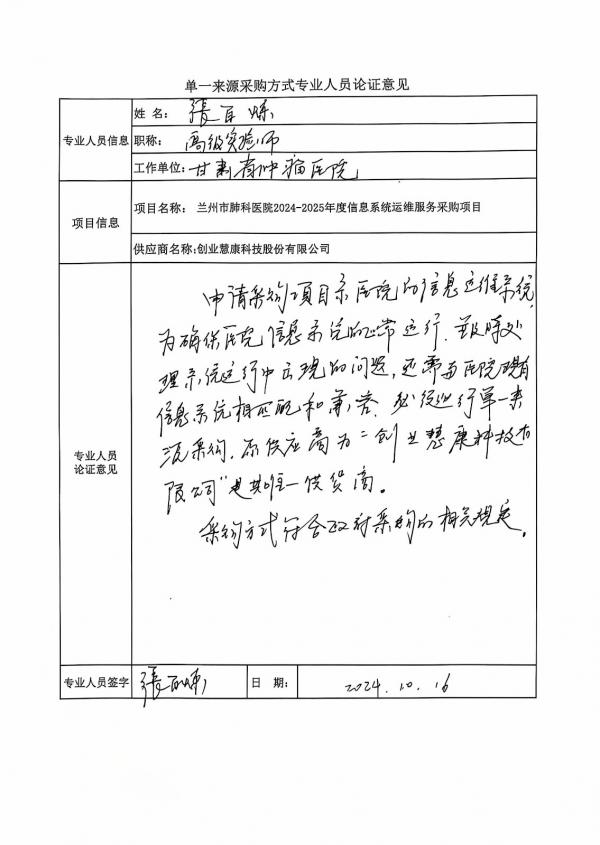 单一来源采购方式专业人员论证意见
专业人员信息
姓 名： 张百炼
职称： 高级实验师
工作单位： 甘肃省肿瘤医院
项目信息
项目名称： 兰州市肺科医院2024-2025年度信息系统运维服务采购项目
供应商名称:创业慧康科技股份有限公司
专业人员
论证意见
申请采购项目系医院的信息运维系统,
为确保医院信息系统的正常运行.及时处
理系统运行中出现的问题,还需与医院现有
信息系统相匹配和兼容.必须进行单一来
源采购.原供应商为“创业慧康科技有
限公司”是其唯一供货商。
采购方式符合政府采购的相关规定。
专业人员签字
张百炼
日 期：
2024.10.16